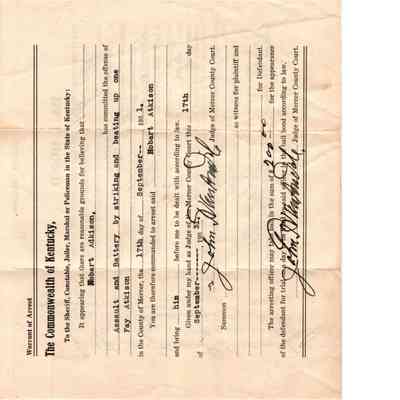 Warrant of Arrest
The Commonwealth of Kentucky,
To the Sheriff, Constable, Jailer, Marshal or Policeman in the State of Kentucky:
It appearing that there are reasonable grounds for believing that
Hobart Adkison,
has committed the offense of
Assault and Battery by striking and beating up one
Fay Atkison
in the County of Mercer, the 17th day of September 1951.
You are therefore commanded to arrest said Hobart Atkison
and bring him before me to be dealt with according to law.
Given under my hand as Judge of Mercer County Court this 17th day
of September 195
Judge of Mercer County Court.
Summon
as witness for plaintiff and
for Defendant.
The arresting officer may in the sum of $200.00 for the appearance
of the defendant for trial bail bond according to law.
Judge of Mercer County Court.